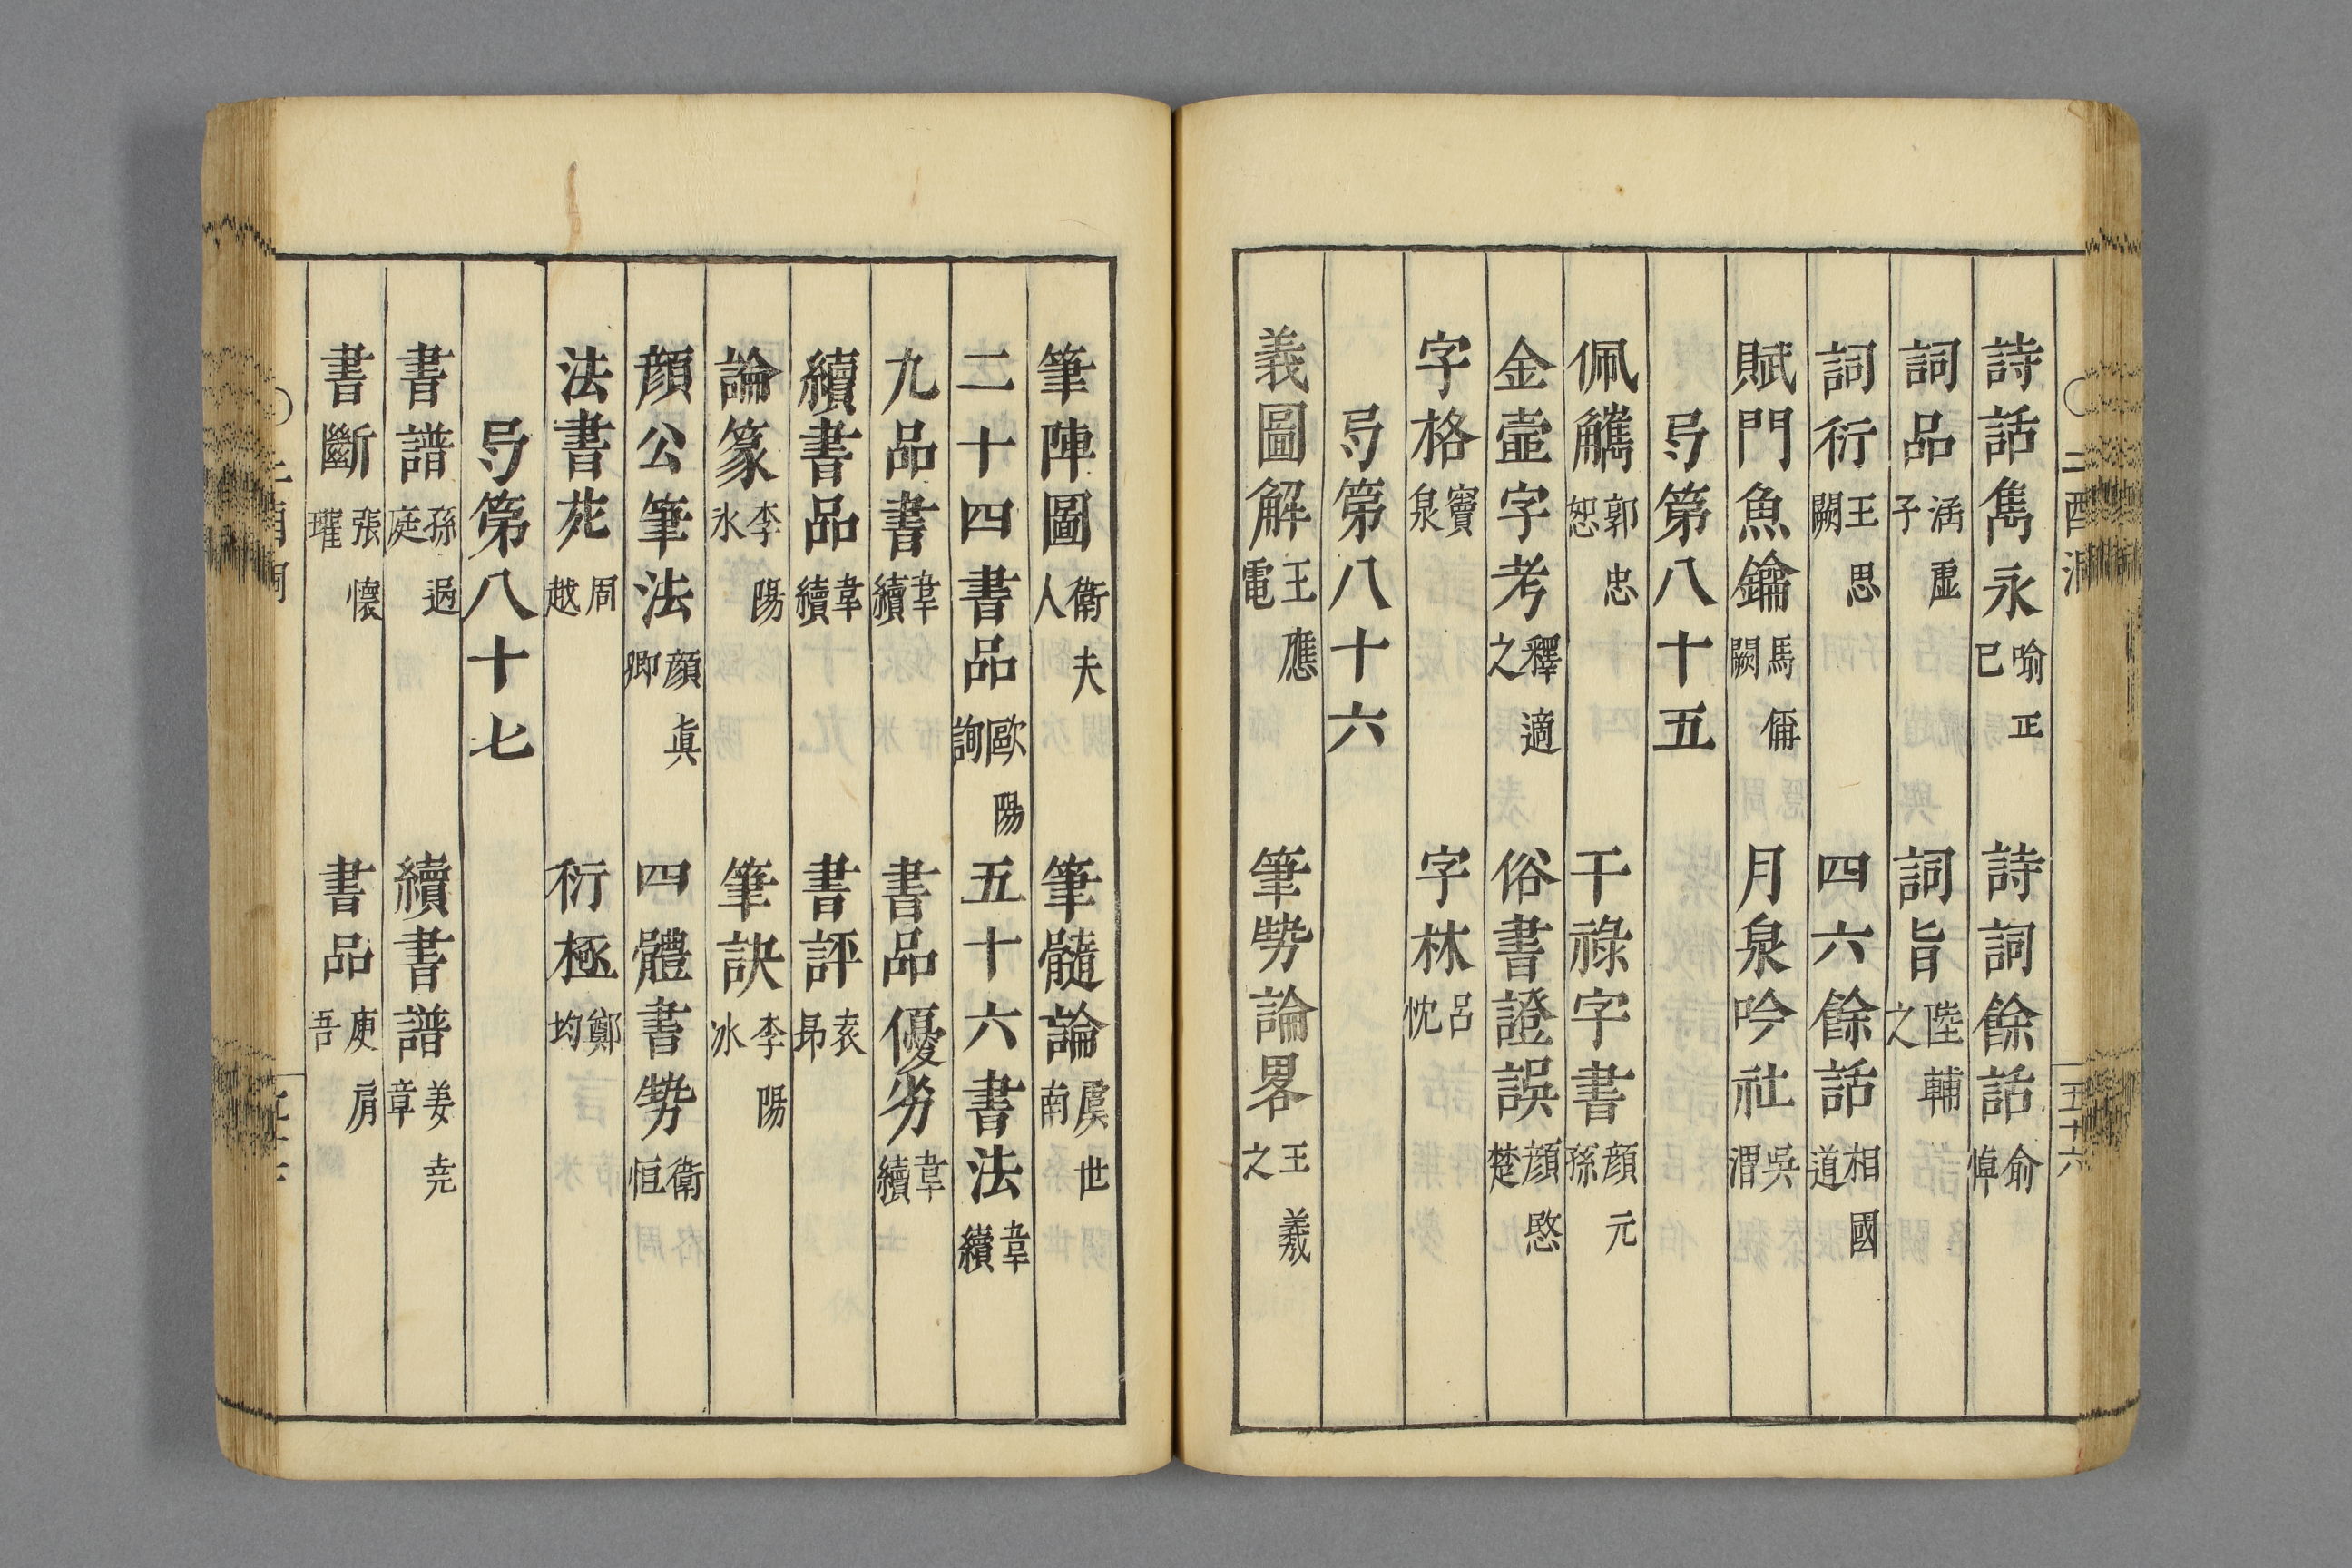 二酉洞
五十六
詩話雋永 喻正己 詩詞餘話 俞焯
詞品 涵虛子 詞旨 陸輔之
詞衍 王思 闕 四六餘話 相國道
賦門魚鑰 馬偁 闕 月泉吟社 吳渭
弓第八十五
佩觿 郭忠恕 干祿字書 顏元孫
金壺字考 釋適之 俗書證誤 顏愍楚
字格 竇泉 字林 呂忱
弓第八十六
義圖解 王應電 筆勢論畧 王羲之
筆陣圖 衛夫人 筆髓論 虞世南
二十四書品 歐陽詢 五十六書法 韋續
九品書 韋續 書品優劣 韋續
續書品 韋續 書評 袁昂
論篆 李陽氷 筆訣 李陽冰
顔公筆法 顔真卿 四體書勢 衛恒
法書苑 周越 衍極 鄭均
弓第八十七
書譜 孫過庭 續書譜 姜尭章
書斷 張懷瓘 書品 庾肩吾